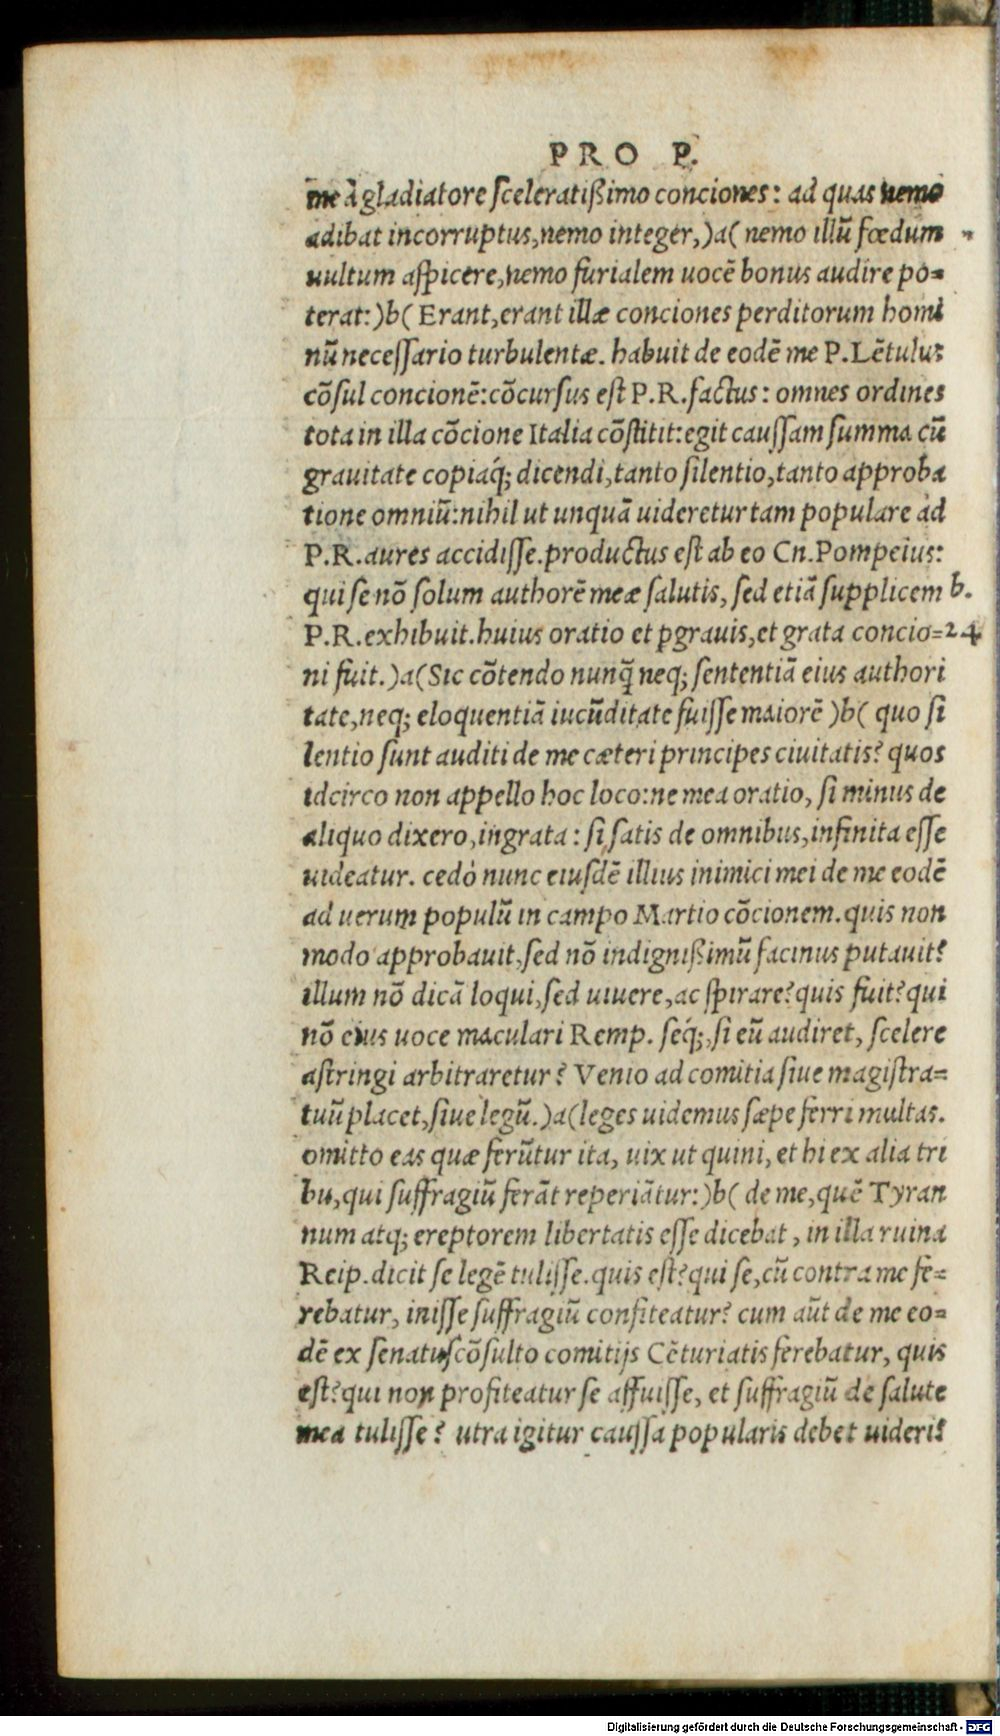 PRO P.
me à gladiatore sceleratißimo conciones: ad quas nemo
adibat incorruptus, nemo integer,)a( nemo illũ fœdum
uultum aspicere, nemo furialem uocẽ bonus audire po=
terat:)b( Erant, erant illæ conciones perditorum homi
nũ necessario turbulentæ. habuit de eodẽ me P. Lẽtulus
cõsul concionẽ: cõcursus est P.R. factus: omnes ordines
tota in illa cõcione Italia cõstitit: egit caussam summa cũ
grauitate copiaq́; dicendi, tanto silentio, tanto approba
tione omniũ: nihil ut unquã uideretur tam populare ad
P.R. aures accidisse. productus est ab eo Cn. Pompeius:
qui se nõ solum authorẽ meæ salutis, sed etiã supplicem b.
P.R. exhibuit. huius oratio et ꝑgrauis, et grata concio= 24
ni fuit.)a( Sic cõtendo nunq̃ neq; sententiã eius authori
tate, neq; eloquentiã iucũditate fuisse maiorẽ )b( quo si
lentio sunt auditi de me cæteri principes ciuitatis? quos
idcirco non appello hoc loco: ne mea oratio, si minus de
aliquo dixero, ingrata: si satis de omnibus, infinita esse
uideatur. cedò nunc eiusdẽ illius inimici mei de me eodẽ
ad uerum populũ in campo Martio cõcionem. quis non
modo approbauit, sed nõ indignißimũ facinus putauit?
illum nõ dicã loqui, sed uiuere, ac spirare? quis fuit? qui
nõ eius uoce maculari Remp. seq́;, si eũ audiret, scelere
astringi arbitraretur? Venio ad comitia siue magistra=
tuũ placet, siue legũ.)a( leges uidemus sæpe ferri multas.
omitto eas quæ ferũtur ita, uix ut quini, et hi ex alia tri
bu, qui suffragiũ ferãt reperiãtur:)b( de me, quẽ Tyran
num atq; ereptorem libertatis esse dicebat, in illa ruina
Reip. dicit se legẽ tulisse. quis est? qui se, cũ contra me fe=
rebatur, inisse suffragiũ confiteatur? cum aũt de me eo=
dẽ ex senatuscõsulto comitijs Cẽturiatis ferebatur, quis
est? qui non profiteatur se affuisse, et suffragiũ de salute
mea tulisse? utra igitur caussa popularis debet uideri?
Digitalisierung gefördert durch die Deutsche Forschungsgemeinschaft - DFG